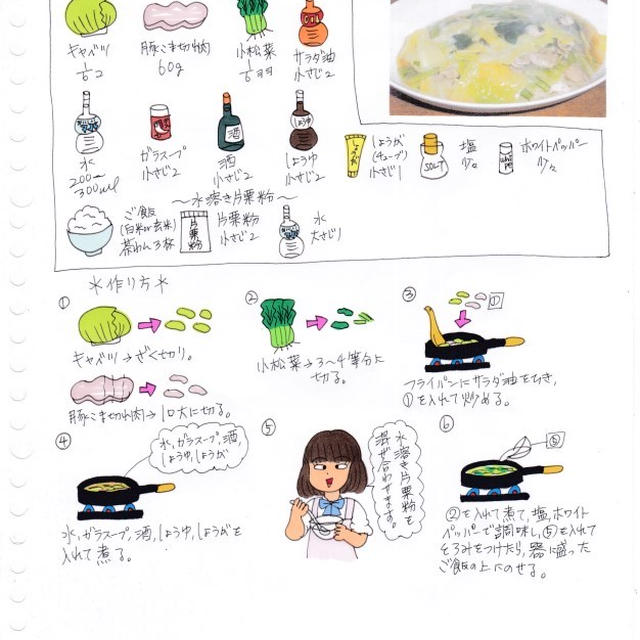 キャベツ
豚こま切れ肉
60g
小松菜
サラダ油
小さじ2
水
200〜
300ml
ガラスープ
小さじ2
酒
酒
小さじ2
しょうゆ
しょうゆ
小さじ2
しょうが
しょうが
(チューブ)
小さじ1
SALT
塩
少々
ホワイトペッパー
少々
〜水溶き片栗粉〜
ご飯
(白米or玄米)
茶わん3杯
片栗粉
片栗粉
小さじ2
水
大さじ1
＊作り方＊
①
キャベツ→ざく切り。
豚こま切れ肉→1口大に切る。
②
小松菜→3〜4等分に
切る。
③
①
フライパンにサラダ油をひき,
①を入れて炒める。
④
水,ガラスープ,酒,
しょうゆ,しょうが
水,ガラスープ,酒,しょうゆ,しょうがを
入れて煮る。
⑤
水溶き片栗粉を
混ぜ合わせます。
⑥
⑤
②を入れて煮て,塩,ホワイト
ペッパーで調味し,⑤を入れて
とろみをつけたら,器に盛った
ご飯の上にのせる。